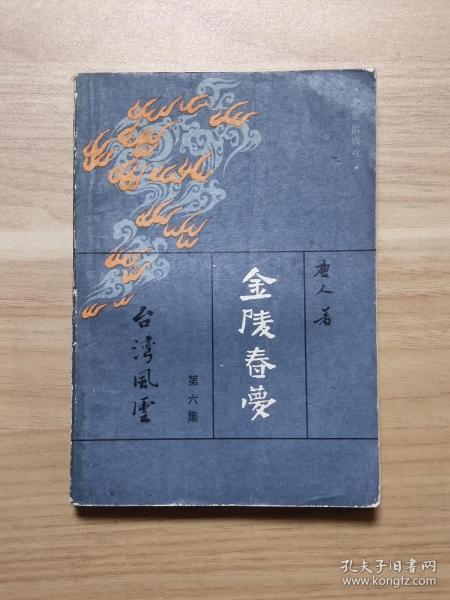 ·北京出版社·
唐人 著
金陵春夢
台灣風雲
第六集
孔夫子旧书网
www.kongfz.com